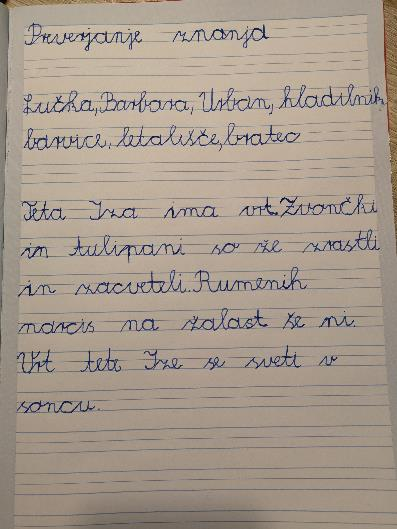 Prverjanje znanja
Lučka, Barbara, Urban, hladilnik,
barvice, letališče, bratec
Teta Iza ima vrt. Zvončki
in tulipani so že zrastli
in zacveteli. Rumenih
narcis na žalast še ni.
Vrt tete Ize se sveti v
soncu.